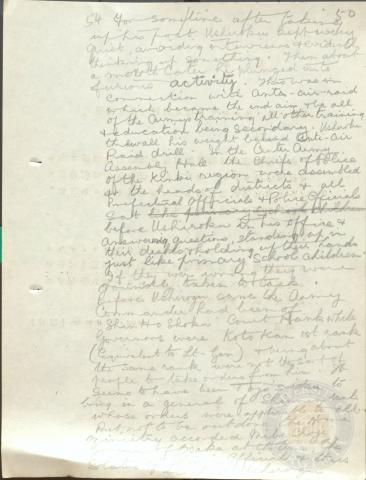 50
54 For sometime after taking
up his post Ushiroku kept very
quiet, avoiding interviews & evidently
thinking up something. Then about
a month later he plunged into
furious activity. This was in
connection with anti-air-raid
which became the end aim & be all
of the Army's training all other training
& education being secondary. Ushiroku
threw all his weight behind Anti-Air
Raid drill. In the Outer Army
Assembly Hall the Chiefs of Police
of the Kinki region were assembled
& the heads of districts & all
Prefectual Officials & Police Officials
sat like primary school children
before Ushiroku in his office &
answering questions, standing up in
their desks & holding up their hands
just like primary School Children.
If they were wrong they were
taken to task.
Before Ushiroku came the Army
Commander had been of
"Shin Ho Shoku" Court Rank while
Governors were Koto Kan 1st rank
(Equivalent to Lt-Gen) & being about
the same rank were not the sort of
people to take orders from him. It
seems to have been Tojo's idea to
bring in a general of Shin rank
whose orders were
But not to be outdone the
ministry accorded
of Osaka
Officials & thus